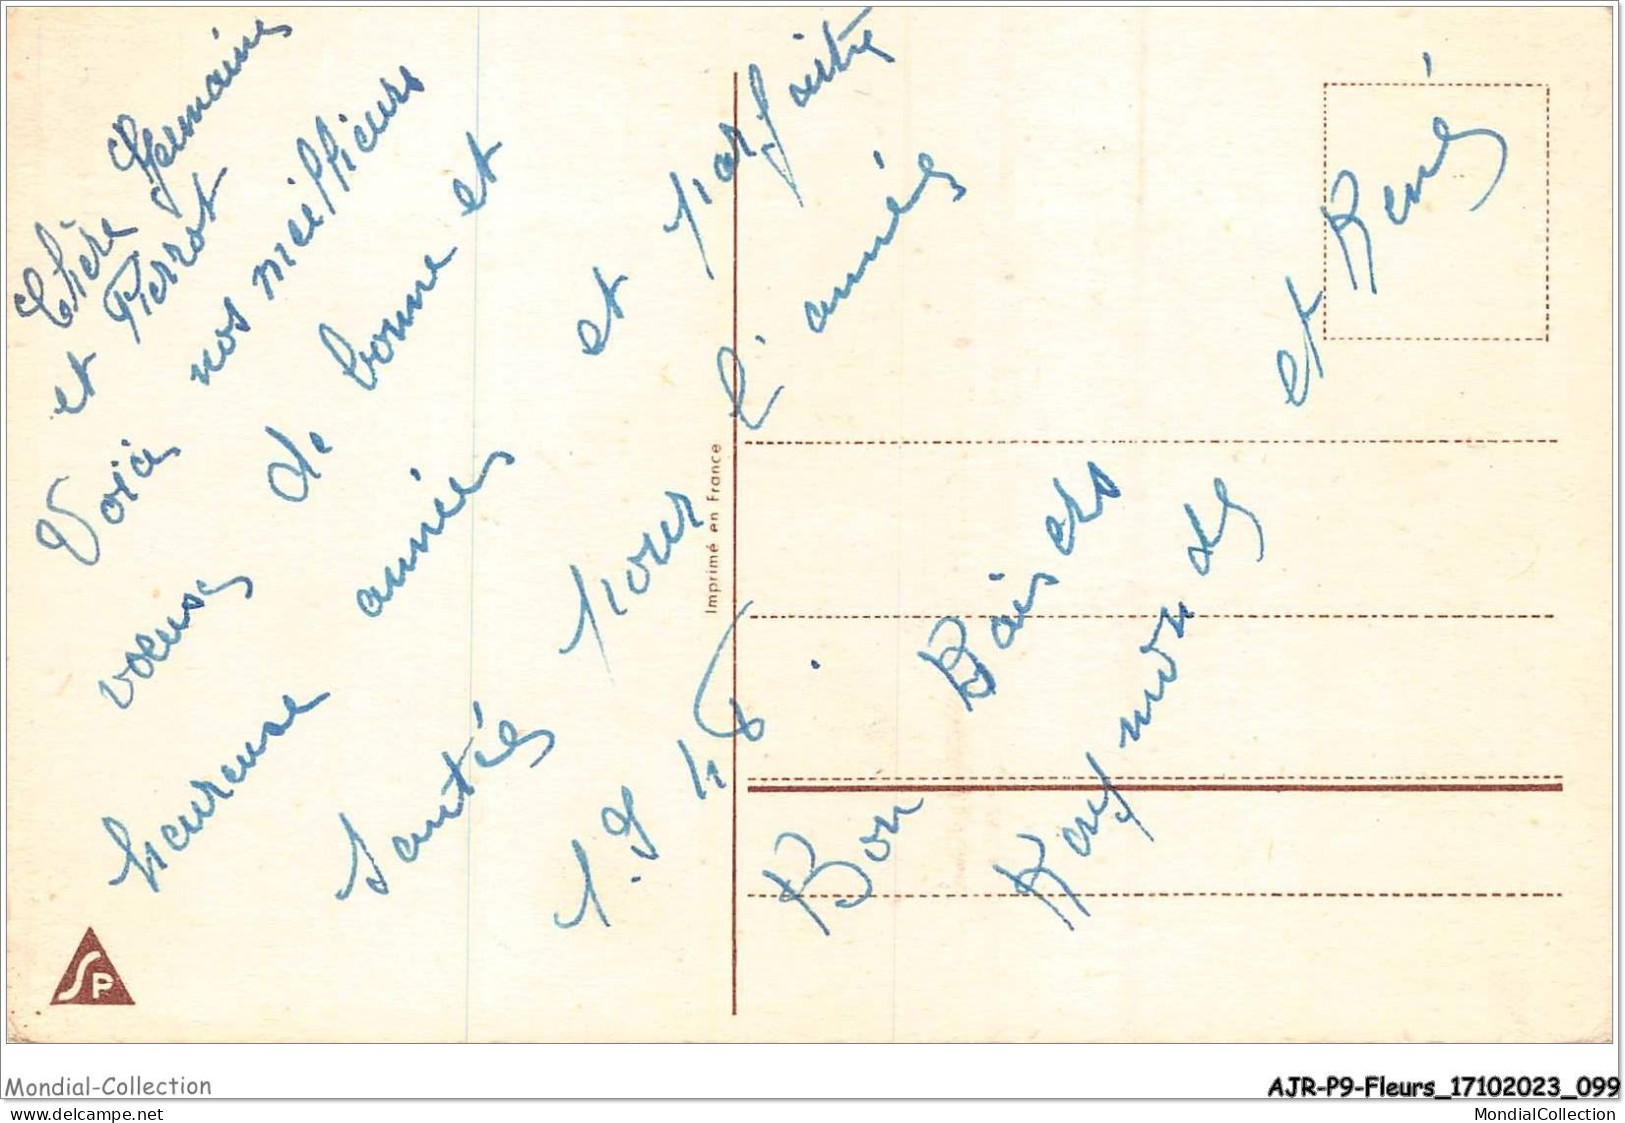 Chère Germaine
et Pierrot
Voici nos meilleurs
voeux de bonne et
heureuse année et parfaite
santé pour l'année
1.9 48.
Bon Baisers
Raymonde et René
Imprimé en France
SP
Mondial-Collection
AJR-P9-Fleurs_17102023_099
www.delcampe.net
MondialCollection